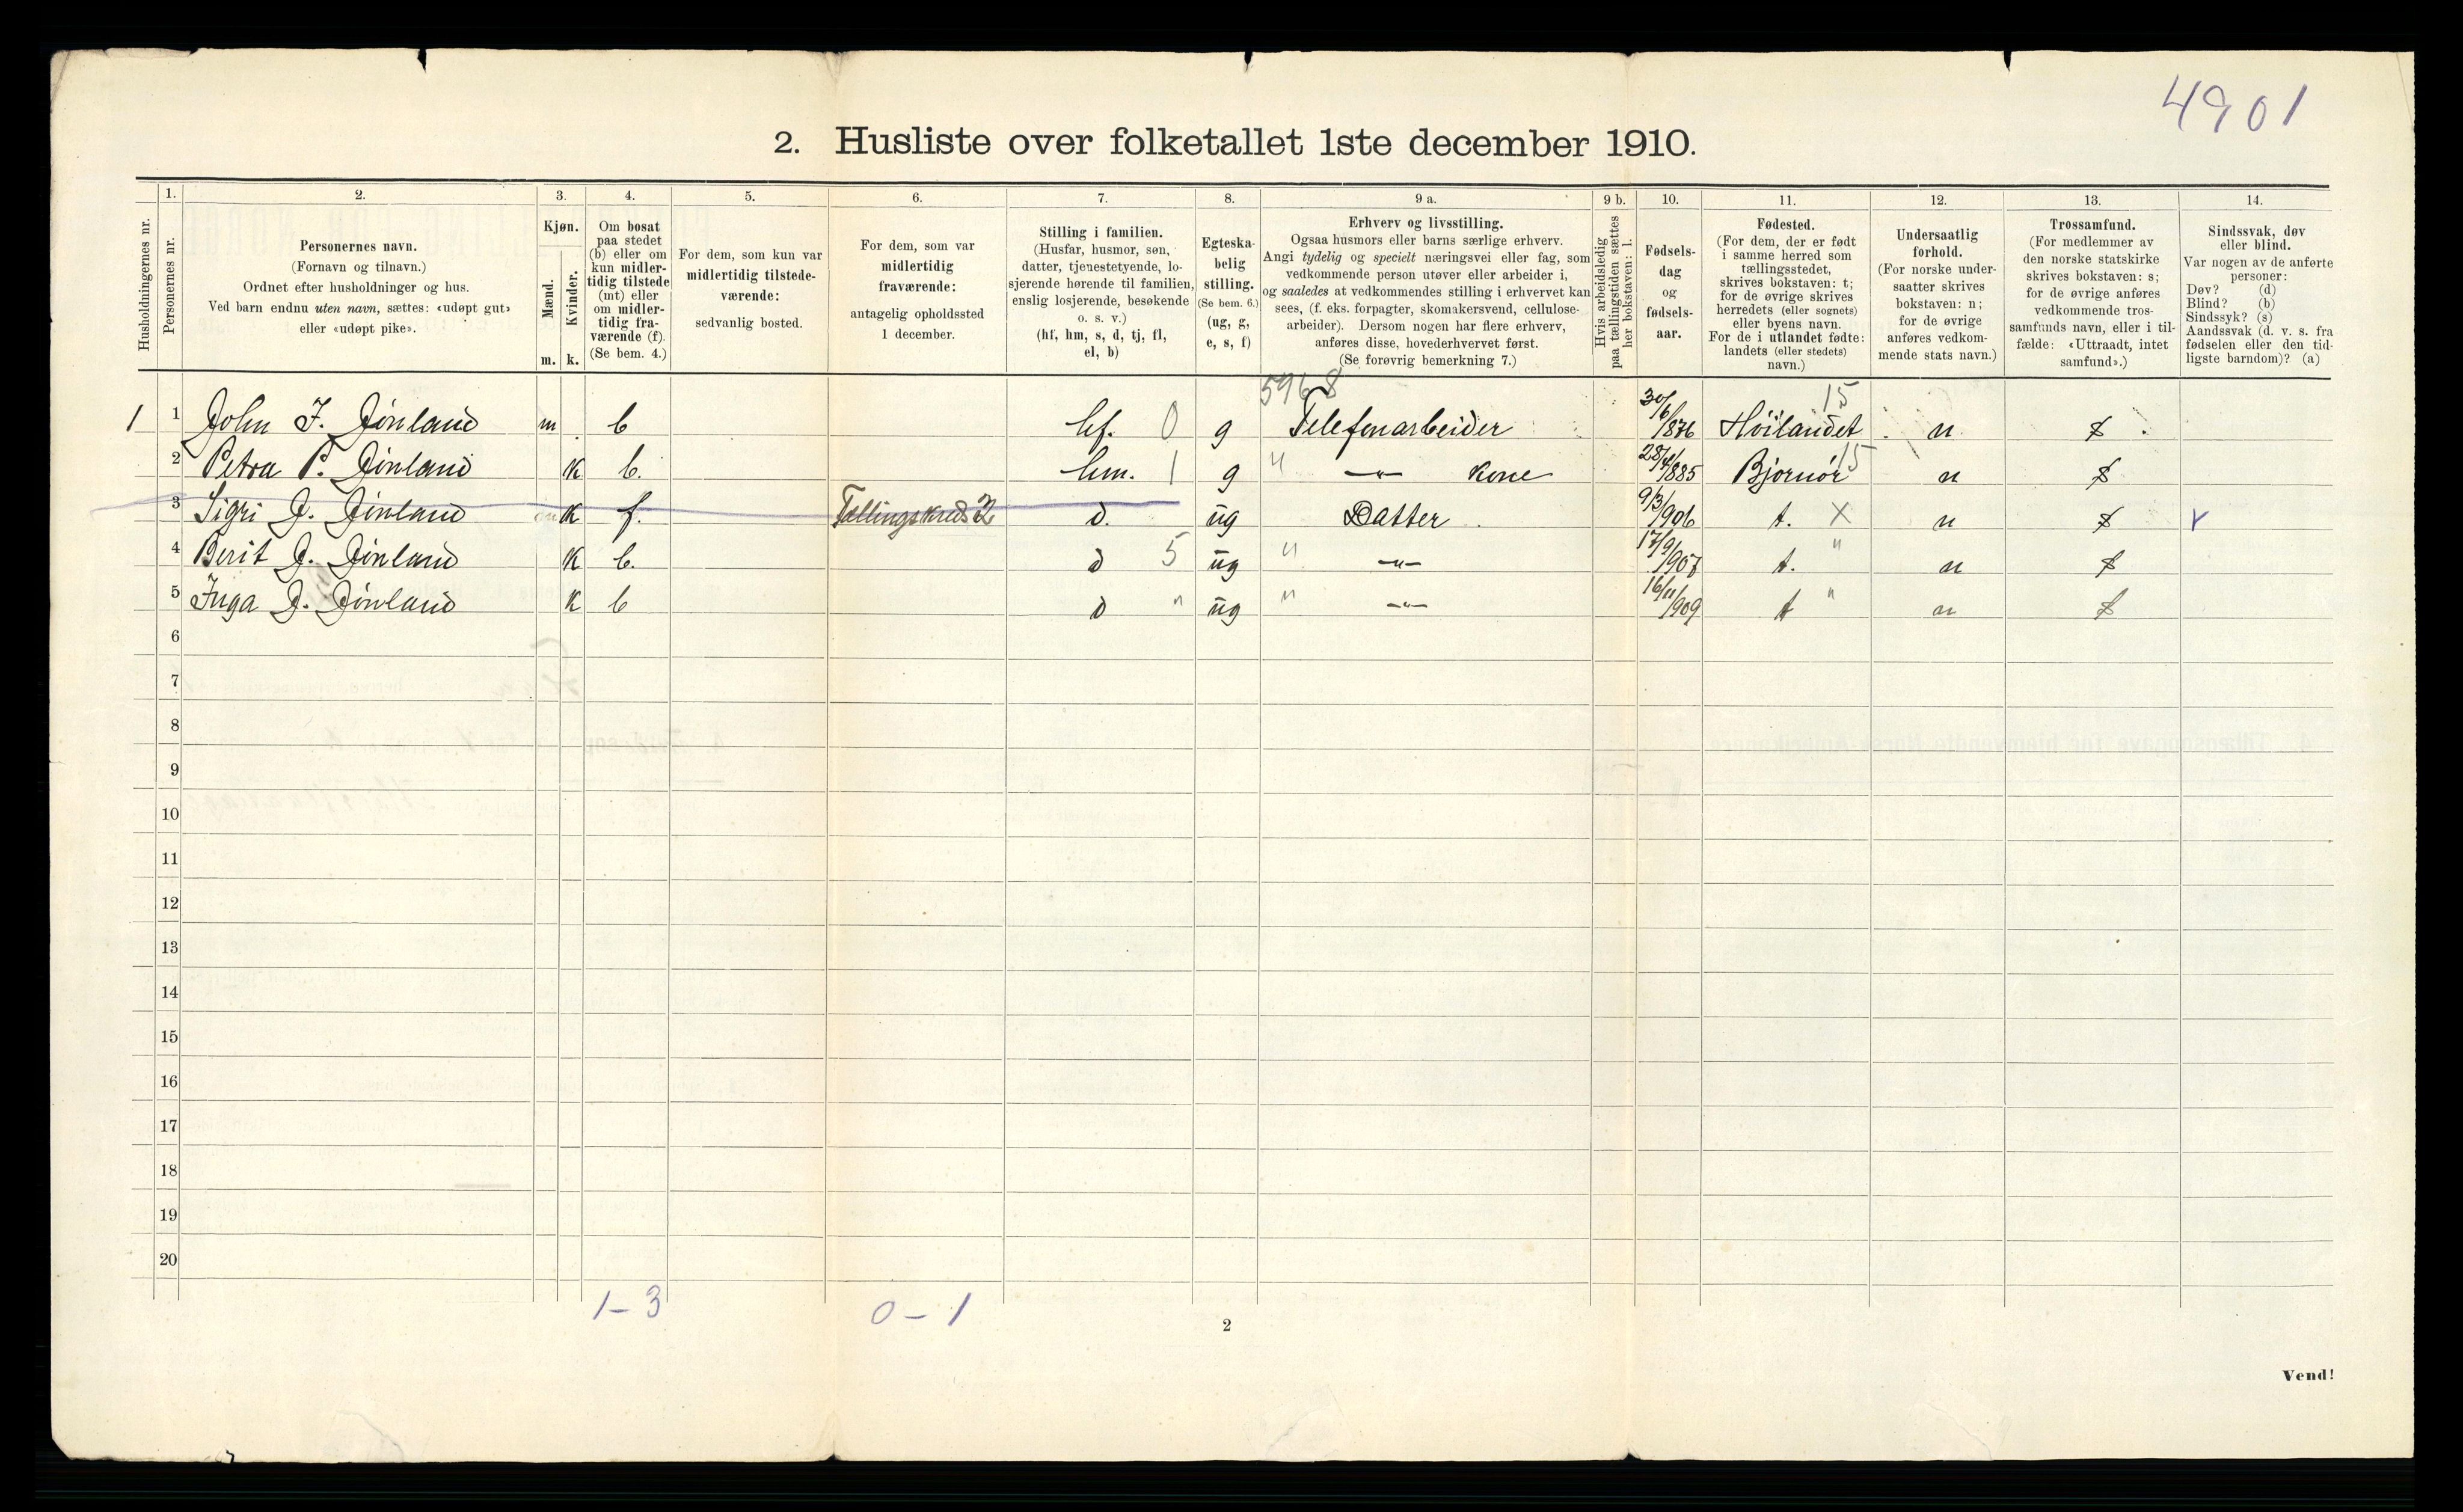 4901
2. Husliste over folketallet 1ste december 1910.
Husholdningernes nr.
1.
Personernes nr.
2.
Personernes navn.
(Fornavn og tilnavn.)
Ordnet efter husholdninger og hus.
Ved barn endnu uten navn, sættes: «udøpt gut»
eller «udøpt pike».
3.
Kjøn.
Mænd.
Kvinder.
m. k.
4.
Om bosat
paa stedet
(b) eller om
kun midler-
tidig tilstede
(mt) eller
om midler-
tidig fra-
værende (f).
(Se bem. 4.)
5.
For dem, som kun var
midlertidig tilstede-
værende:
sedvanlig bosted.
6.
For dem, som var
midlertidig
fraværende:
antagelig opholdssted
1 december.
7.
Stilling i familien.
(Husfar, husmor, søn,
datter, tjenestetyende, lo-
sjerende hørende til familien,
enslig losjerende, besøkende
o. s. v.)
(hf, hm, s, d, tj, fl,
el, b)
8.
Egteska-
belig
stilling.
(Se bem. 6.)
(ug, g,
e, s, f)
9 a.
Erhverv og livsstilling.
Ogsaa husmors eller barns særlige erhverv.
Angi tydelig og specielt næringsvei eller fag, som
vedkommende person utøver eller arbeider i,
og saaledes at vedkommendes stilling i erhvervet kan
sees, (f. eks. forpagter, skomakersvend, cellulose-
arbeider). Dersom nogen har flere erhverv,
anføres disse, hovederhvervet først.
(Se forøvrig bemerkning 7.)
9 b.
Hvis arbeidsledig
paa tællingstiden sættes
her bokstaven: l.
10.
Fødsels-
dag
og
fødsels-
aar.
11.
Fødested.
(For dem, der er født
i samme herred som
tællingsstedet,
skrives bokstaven: t;
for de øvrige skrives
herredets (eller sognets)
eller byens navn.
For de i utlandet fødte:
landets (eller stedets)
navn.)
12.
Undersaatlig
forhold.
(For norske under-
saatter skrives
bokstaven: n;
for de øvrige
anføres vedkom-
mende stats navn.)
13.
Trossamfund.
(For medlemmer av
den norske statskirke
skrives bokstaven: s;
for de øvrige anføres
vedkommende tros-
samfunds navn, eller i til-
fælde: «Uttraadt, intet
samfund».)
14.
Sindssvak, døv
eller blind.
Var nogen av de anførte
personer:
Døv? (d)
Blind? (b)
Sindssyk? (s)
Aandssvak (d. v. s. fra
fødselen eller den tid-
ligste barndom)? (a)
5968 15
1 1 John J. Jönland m b hf. 0 g Telefonarbeider 30/6/876 Höilandet n s
2 Petra P. Jönland k b. hm. 1 g " —"— kone 28/4/885 Bjornör 15 n s
3 Sigri J. Jönland k f. Tællingskreds 2 d. ug Datter 9/3/906 t. X n s
4 Berit J. Jönland k b. d 5 ug " —"— 17/9/907 t. " n s
5 Inga J. Jönland k b d " ug " —"— 16/11/909 t " n s
6
7
8
9
10
11
12
13
14
15
16
17
18
19
20
1-3 0-1
2
Vend!